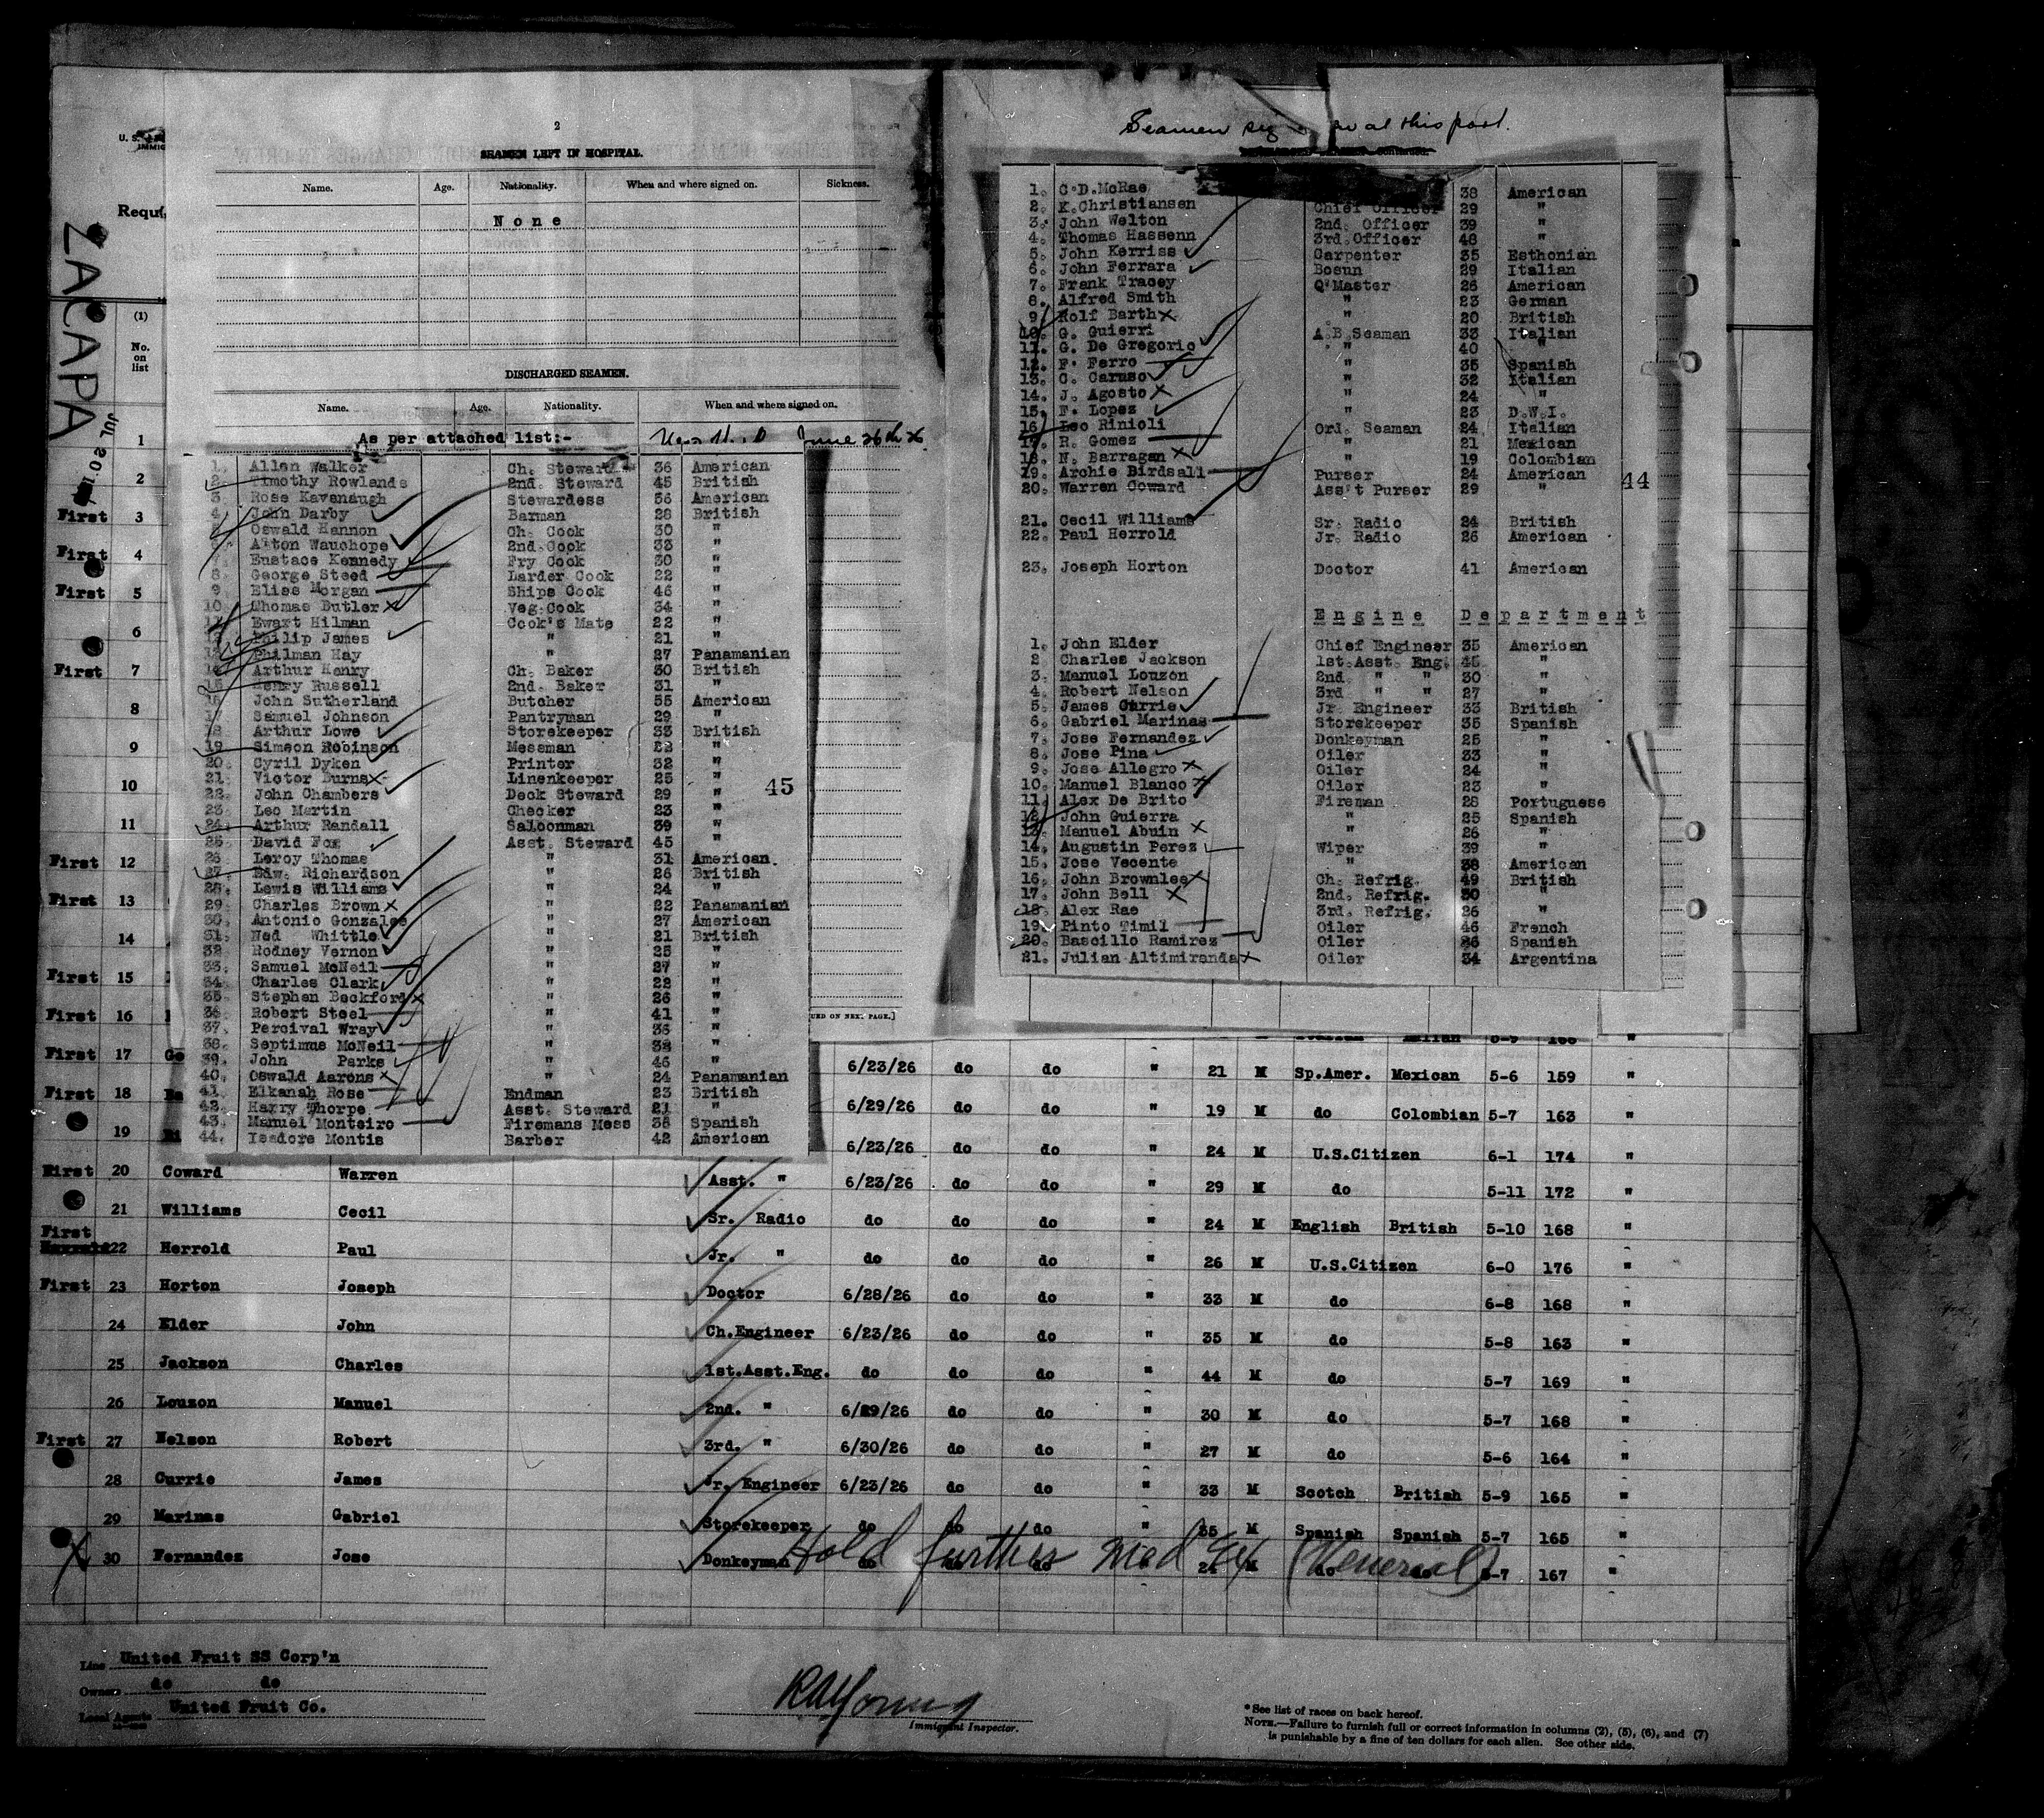 2
SEAMEN LEFT IN HOSPITAL.
Name. Age. Nationality. When and where signed on. Sickness.
None
DISCHARGED SEAMEN.
Name. Age. Nationality. When and where signed on.
As per attached list:- June 26th 26
1. Allen Walker Ch. Steward 36 American
2. Timothy Rowlands 2nd. Steward 45 British
3. Rose Kavanaugh Stewardess 36 American
4. John Darby Barman 28 British
5. Oswald Hannon Ch. Cook 30 "
6. Alton Wauchope 2nd. Cook 33 "
7. Eustace Kennedy Fry Cook 30 "
8. George Steed Larder Cook 22 "
9. Elias Morgan Ships Cook 46 "
10. Thomas Butler Veg. Cook 34 "
11. Ewart Hilman Cook's Mate 22 "
12. Philip James " 21 "
13. Philman Hay " 27 Panamanian
14. Arthur Henry Ch. Baker 30 British
15. Henry Russell 2nd. Baker 31 "
16. John Sutherland Butcher 55 American
17. Samuel Johnson Pantryman 29 "
18. Arthur Lowe Storekeeper 33 British
19. Simeon Robinson Messman 28 "
20. Cyril Dyken Printer 32 "
21. Victor Burns Linenkeeper 25 "
22. John Chambers Deck Steward 29 "
23. Leo Martin Checker 23 "
24. Arthur Randall Saloonman 39 "
25. David Fox Asst. Steward 45 "
26. Leroy Thomas " 31 American.
27. Edw. Richardson " 26 British
28. Lewis Williams " 24 "
29. Charles Brown " 22 Panamanian
30. Antonio Gonzales " 27 American
31. Ned Whittle " 21 British
32. Rodney Vernon " 25 "
33. Samuel McNeil " 27 "
34. Charles Clark " 22 "
35. Stephen Beckford " 26 "
36. Robert Steel " 41 "
37. Percival Wray " 36 "
38. Septimus McNeil " 38 "
39. John Parks " 46 "
40. Oswald Aarons " 24 Panamanian
41. Elkanah Rose Endman 23 British
42. Harry Thorpe Asst. Steward 21 "
43. Manuel Monteiro Firemans Mess 38 Spanish
44. Isadore Montis Barber 42 American
45
UED ON NEXT PAGE.]
Seamen sig on at this port.
1. C.D.McRae 38 American
2. K.Christiansen Chief Officer 29 "
3. John Welton 2nd. Officer 39 "
4. Thomas Hassenn 3rd.Officer 48 "
5. John Kerriss Carpenter 35 Esthonian
6. John Ferrara Bosun 29 Italian
7. Frank Tracey Q'Master 26 American
8. Alfred Smith " 23 German
9. Rolf Barth " 20 British
10. G. Guierri A.B.Seaman 33 Italian
11. G. De Gregorio " 40 "
12. F. Ferro " 35 Spanish
13. C. Caruso " 32 Italian
14. J. Agosto " 24 "
15. F. Lopez " 23 D.W.I.
16. Leo Rinioli Ord. Seaman 24 Italian
17. R. Gomez " 21 Mexican
18. N. Barragan " 19 Colombian
19. Archie Birdsall Purser 24 American
20. Warren Coward Ass't Purser 29 "
44
21. Cecil Williams Sr. Radio 24 British
22. Paul Herrold Jr. Radio 26 American
23. Joseph Horton Doctor 41 American
Engine Department
1. John Elder Chief Engineer 35 American
2 Charles Jackson 1st.Asst. Eng. 45 "
3. Manuel Louzon 2nd. " " 30 "
4. Robert Nelson 3rd " " 27 "
5. James Currie Jr. Engineer 33 British
6. Gabriel Marinas Storekeeper 35 Spanish
7. Jose Fernandez Donkeyman 25 "
8. Jose Pina Oiler 33 "
9. Jose Allegro Oiler 24 "
10. Manuel Blanco Oiler 23 "
11. Alex De Brito Fireman 28 Portuguese
12. John Guierra " 25 Spanish
13. Manuel Abuin " 26 "
14. Augustin Perez Wiper 39 "
15. Jose Vecente " 38 American
16. John Brownlee Ch. Refrig. 49 British
17. John Bell 2nd. Refrig. 30 "
18. Alex Rae 3rd. Refrig. 26 "
19. Pinto Timil Oiler 46 French
20. Bascillo Ramirez Oiler 36 Spanish
21. Julian Altimiranda Oiler 34 Argentina
ZACAPA
JUL 20 19
Requ
(1)
No. on list
1
2
First 3
First 4
First 5
6
First 7
8
9
10
11
First 12
First 13
14
First 15
First 16
First 17
6/23/26 do do " 21 M Sp.Amer. Mexican 5-6 159 "
First 18 6/29/26 do do " 19 M do Colombian 5-7 163 "
19 6/23/26 do do " 24 M U.S.Citizen 6-1 174 "
First 20 Coward Warren Asst. " 6/23/26 do do " 29 M do 5-11 172 "
21 Williams Cecil Sr. Radio do do do " 24 M English British 5-10 168 "
First 22 Herrold Paul Jr. " do do do " 26 M U.S.Citizen 6-0 176 "
First 23 Horton Joseph Doctor 6/28/26 do do " 33 M do 6-8 168 "
24 Elder John Ch.Engineer 6/23/26 do do " 35 M do 5-8 163 "
25 Jackson Charles 1st.Asst.Eng. do do do " 44 M do 5-7 169 "
26 Louzon Manuel 2nd. " 6/29/26 do do " 30 M do 5-7 168 "
First 27 Nelson Robert 3rd. " 6/30/26 do do " 27 M do 5-6 164 "
28 Currie James Jr. Engineer 6/23/26 do do " 33 M Scotch British 5-9 165 "
29 Marinas Gabriel Storekeeper do do do " 35 M Spanish Spanish 5-7 165 "
30 Fernandez Jose Donkeyman do do do " 24 M do do 5-7 167 "
Hold further Med Ex (Venereal)
Line United Fruit SS Corp'n
Owners do do
Local Agents United Fruit Co.
RAYoung
Immigrant Inspector.
* See list of races on back hereof.
NOTE.—Failure to furnish full or correct information in columns (2), (5), (6), and (7)
is punishable by a fine of ten dollars for each alien. See other side.